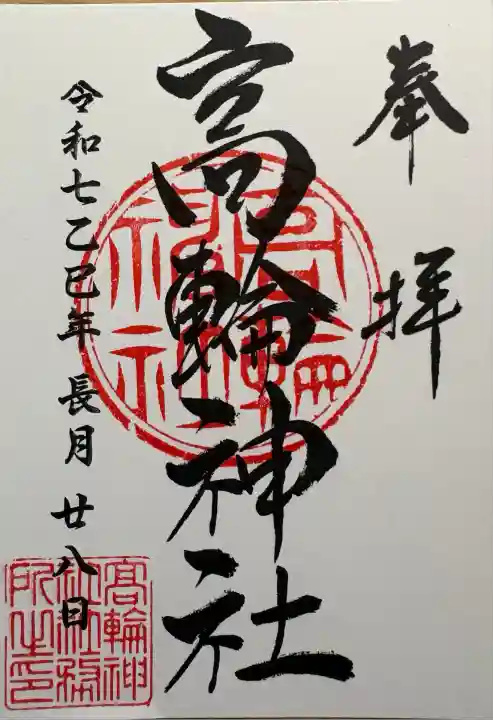 奉拝
高輪神社
令和七乙巳年 長月 廿八日
高輪神社
高輪神社社務所之印